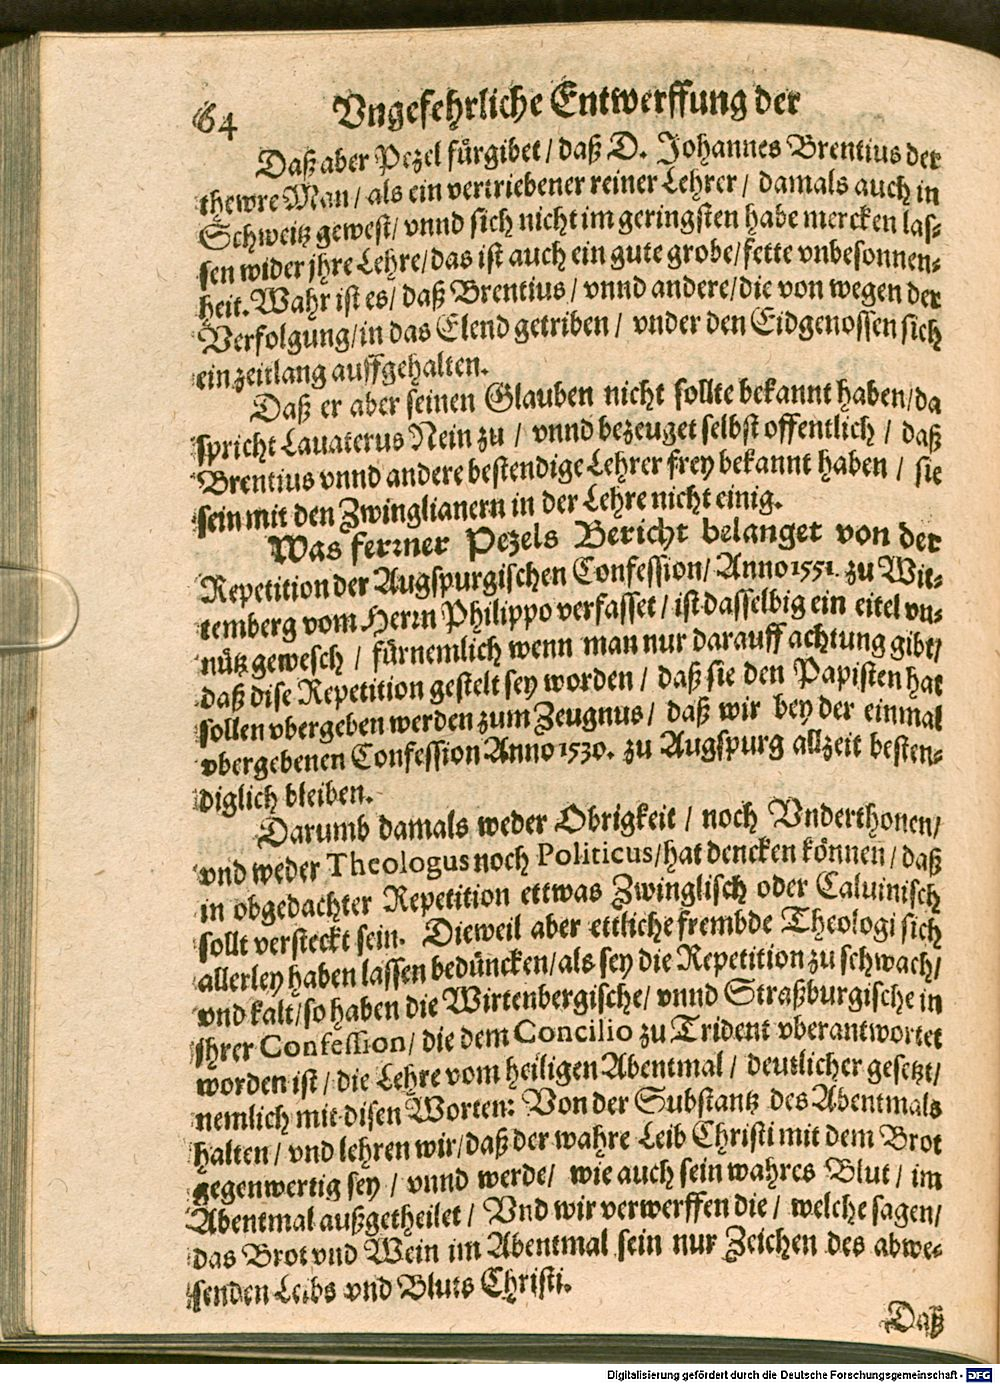 64 Vngefehrliche Entwerffung der
Daß aber Pezel fürgibet / daß D. Johannes Brentius der
thewre Man / als ein vertriebener reiner Lehrer / damals auch in
Schweitz gewest / vnnd sich nicht im geringsten habe mercken las-
sen wider jhre Lehre / das ist auch ein gute grobe / fette vnbesonnen-
heit. Wahr ist es / daß Brentius / vnnd andere / die von wegen der
Verfolgung / in das Elend getriben / vnder den Eidgenossen sich
ein zeitlang auffgehalten.
Daß er aber seinen Glauben nicht sollte bekannt haben / da
spricht Lauaterus Nein zu / vnnd bezeuget selbst offentlich / daß
Brentius vnnd andere bestendige Lehrer frey bekannt haben / sie
sein mit den Zwinglianern in der Lehre nicht einig.
Was ferrner Pezels Bericht belanget von der
Repetition der Augspurgischen Confession / Anno 1551. zu Wit-
temberg vom Herrn Philippo verfasset / ist dasselbig ein eitel vn-
nütz gewesch / fürnemlich wenn man nur darauff achtung gibt /
daß dise Repetition gestelt sey worden / daß sie den Papisten hat
sollen vbergeben werden zum Zeugnus / daß wir bey der einmal
vbergebenen Confession Anno 1530. zu Augspurg allzeit besten-
diglich bleiben.
Darumb damals weder Obrigkeit / noch Vnderthonen /
vnd weder Theologus noch Politicus / hat dencken können / daß
in obgedachter Repetition ettwas Zwinglisch oder Caluinisch
sollt versteckt sein. Dieweil aber ettliche frembde Theologi sich
allerley haben lassen bedüncken / als sey die Repetition zu schwach /
vnd kalt / so haben die Wirtenbergische / vnnd Straßburgische in
jhrer Confession / die dem Concilio zu Trident vberantwortet
worden ist / die Lehre vom heiligen Abentmal / deutlicher gesetzt /
nemlich mit disen Worten: Von der Substantz des Abentmals
halten / vnd lehren wir / daß der wahre Leib Christi mit dem Brot
gegenwertig sey / vnnd werde / wie auch sein wahres Blut / im
Abentmal außgetheilet / Vnd wir verwerffen die / welche sagen /
das Brot vnd Wein im Abentmal sein nur Zeichen des abwe-
senden Leibs vnd Bluts Christi.
Daß
Digitalisierung gefördert durch die Deutsche Forschungsgemeinschaft - DFG